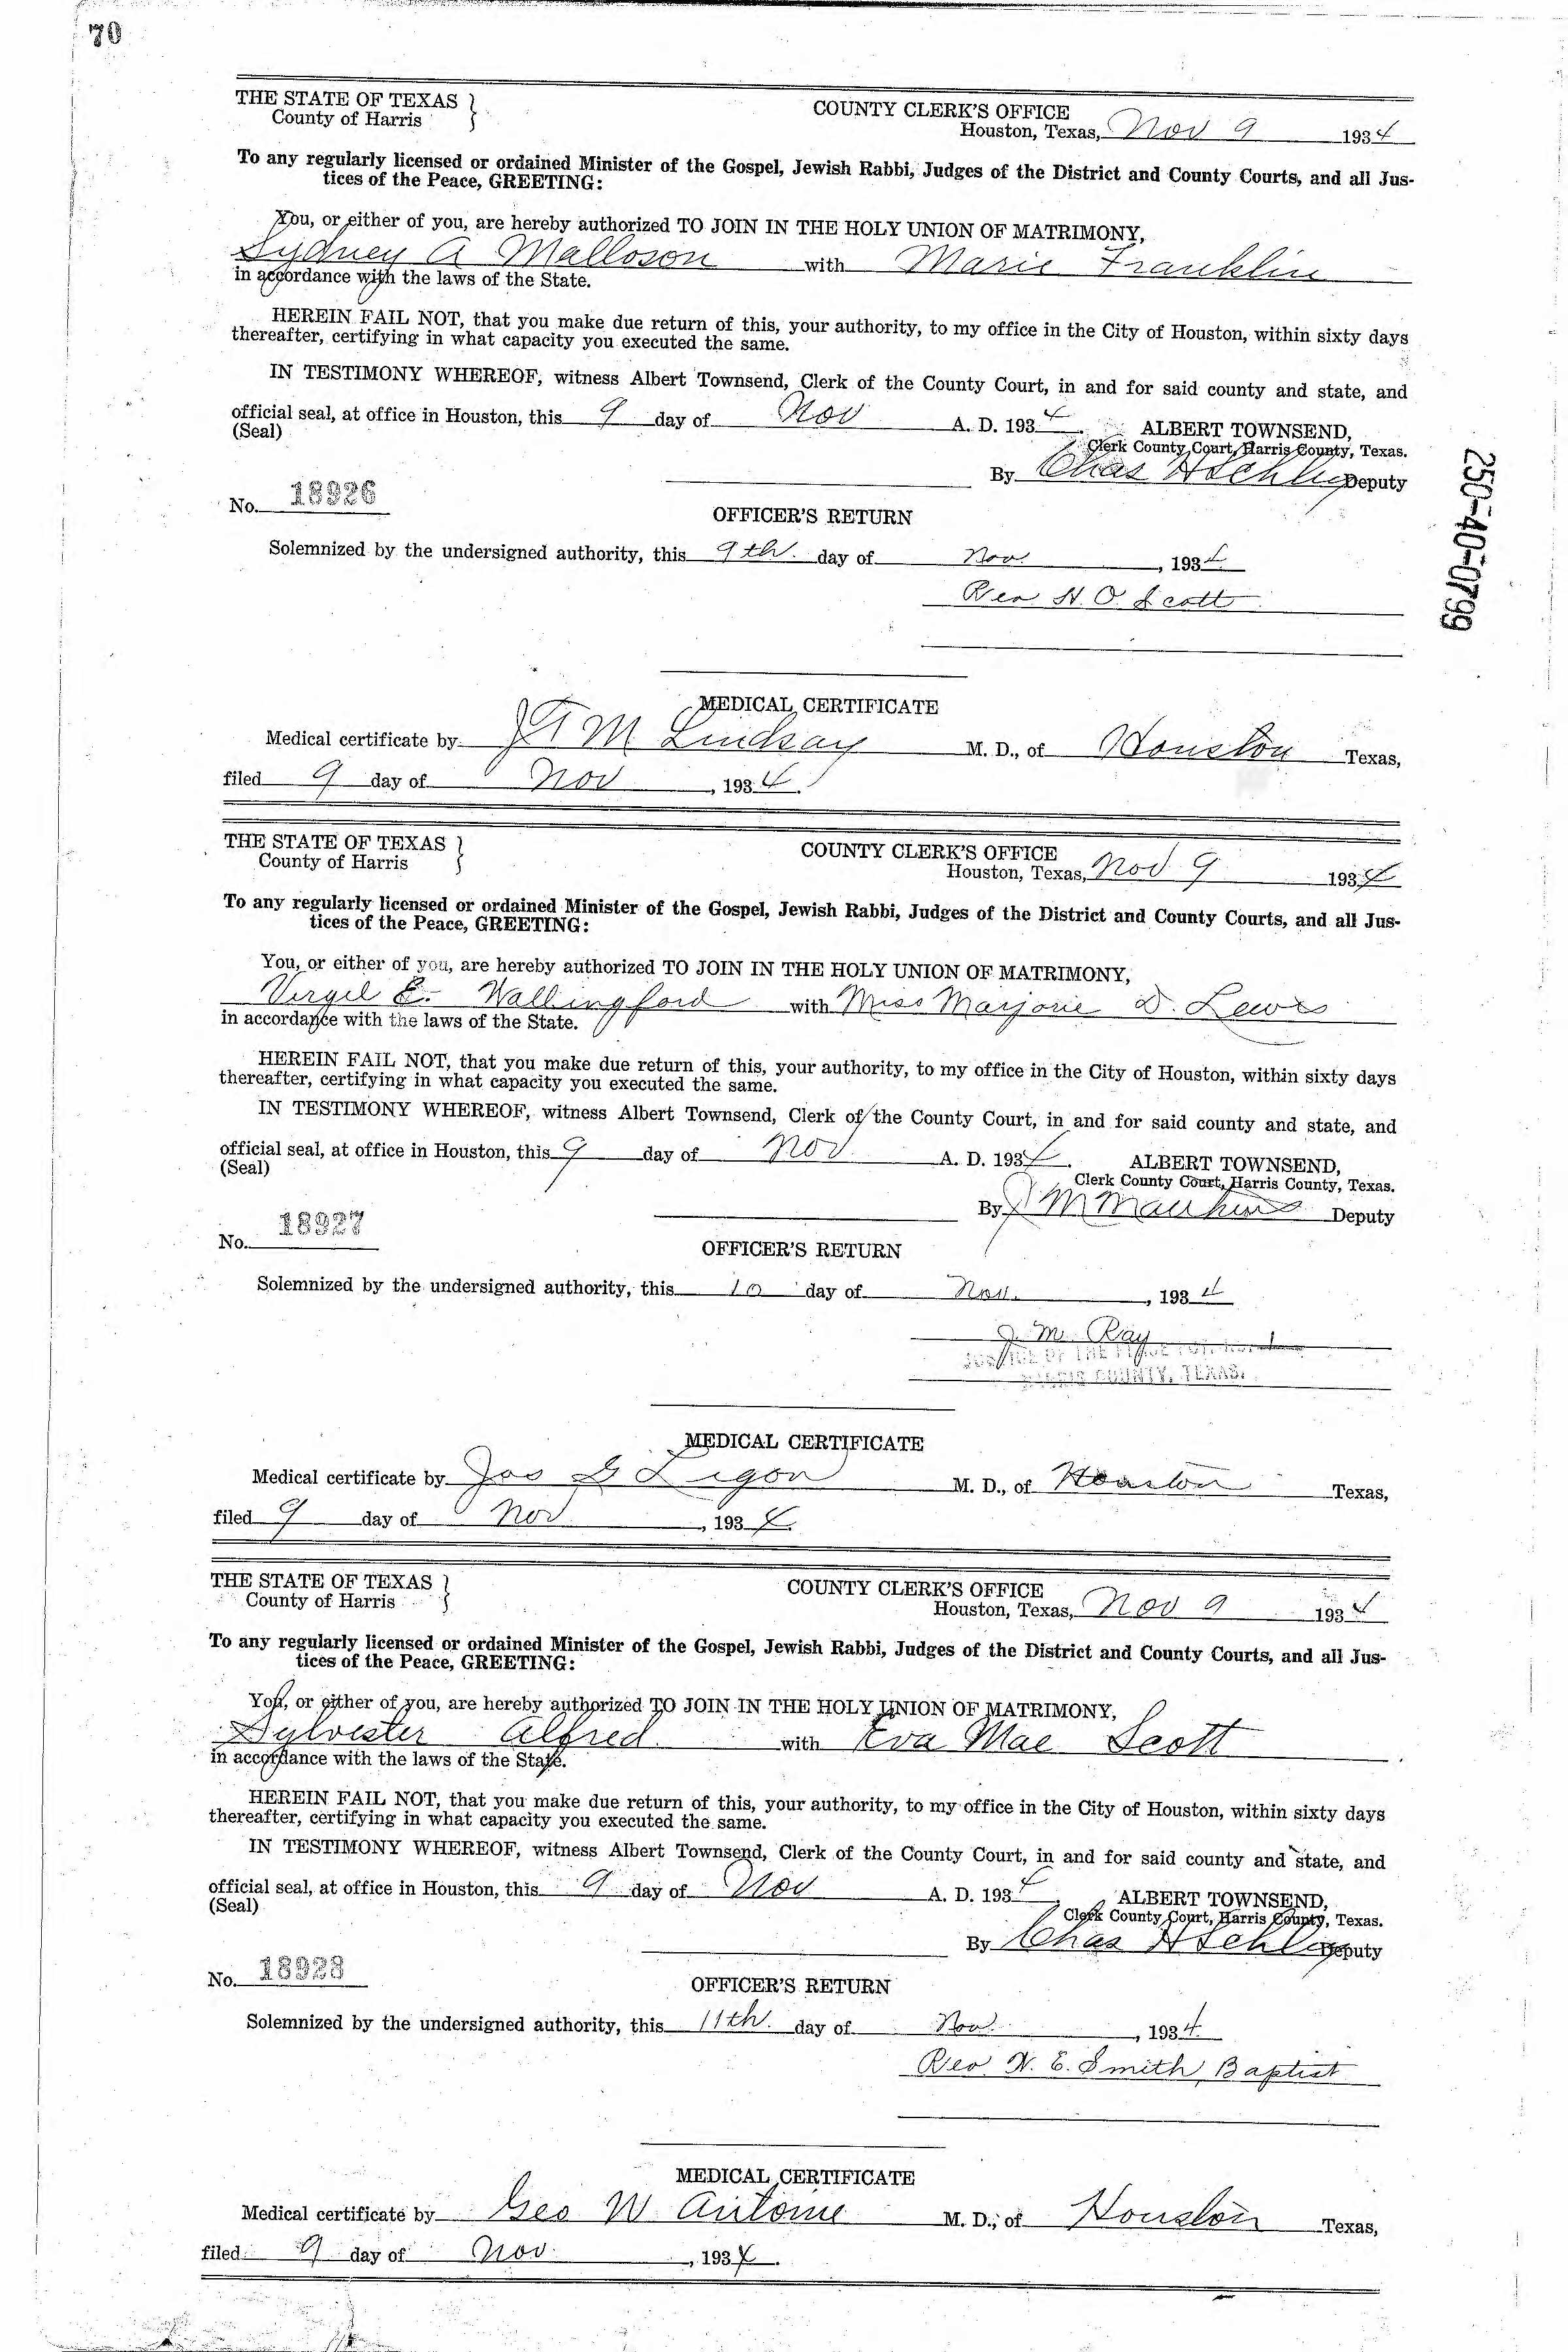 70
THE STATE OF TEXAS }
County of Harris
COUNTY CLERK'S OFFICE
Houston, Texas, Nov 9 1934
To any regularly licensed or ordained Minister of the Gospel, Jewish Rabbi, Judges of the District and County Courts, and all Jus-
tices of the Peace, GREETING:
You, or either of you, are hereby authorized TO JOIN IN THE HOLY UNION OF MATRIMONY,
Sydney A Malloson with Marie Franklin
in accordance with the laws of the State.
HEREIN FAIL NOT, that you make due return of this, your authority, to my office in the City of Houston, within sixty days
thereafter, certifying in what capacity you executed the same.
IN TESTIMONY WHEREOF, witness Albert Townsend, Clerk of the County Court, in and for said county and state, and
official seal, at office in Houston, this 9 day of Nov A. D. 1934. ALBERT TOWNSEND,
(Seal) Clerk County Court, Harris County, Texas.
By Chas Deputy
No. 18926
OFFICER'S RETURN
Solemnized by the undersigned authority, this 9th. day of Nov. , 1934
Rev H. O. Scott
250-40-0799
MEDICAL CERTIFICATE
Medical certificate by M Lindsay M. D., of Houston Texas,
filed 9 day of Nov , 1934.
THE STATE OF TEXAS }
County of Harris
COUNTY CLERK'S OFFICE
Houston, Texas, Nov 9 1934
To any regularly licensed or ordained Minister of the Gospel, Jewish Rabbi, Judges of the District and County Courts, and all Jus-
tices of the Peace, GREETING:
You, or either of you, are hereby authorized TO JOIN IN THE HOLY UNION OF MATRIMONY,
Virgil E. Wallingford with Miss Marjorie D. Lewis
in accordance with the laws of the State.
HEREIN FAIL NOT, that you make due return of this, your authority, to my office in the City of Houston, within sixty days
thereafter, certifying in what capacity you executed the same.
IN TESTIMONY WHEREOF, witness Albert Townsend, Clerk of the County Court, in and for said county and state, and
official seal, at office in Houston, this 9 day of Nov. A. D. 1934. ALBERT TOWNSEND,
(Seal) Clerk County Court, Harris County, Texas.
By M Deputy
No. 18927
OFFICER'S RETURN
Solemnized by the undersigned authority, this 10 day of Nov. , 1934
J. M. Ray
JUSTICE OF THE PEACE
HARRIS COUNTY, TEXAS.
MEDICAL CERTIFICATE
Medical certificate by Jos G Ligon M. D., of Houston Texas,
filed 9 day of Nov , 1934.
THE STATE OF TEXAS }
County of Harris
COUNTY CLERK'S OFFICE
Houston, Texas, Nov 9 1934
To any regularly licensed or ordained Minister of the Gospel, Jewish Rabbi, Judges of the District and County Courts, and all Jus-
tices of the Peace, GREETING:
You, or either of you, are hereby authorized TO JOIN IN THE HOLY UNION OF MATRIMONY,
Sylvester Alfred with Eva Mae Scott
in accordance with the laws of the State.
HEREIN FAIL NOT, that you make due return of this, your authority, to my office in the City of Houston, within sixty days
thereafter, certifying in what capacity you executed the same.
IN TESTIMONY WHEREOF, witness Albert Townsend, Clerk of the County Court, in and for said county and state, and
official seal, at office in Houston, this 9 day of Nov A. D. 1934. ALBERT TOWNSEND,
(Seal) Clerk County Court, Harris County, Texas.
By Chas Deputy
No. 18928
OFFICER'S RETURN
Solemnized by the undersigned authority, this 11th. day of Nov. , 1934
Rev. N. E. Smith, Baptist
MEDICAL CERTIFICATE
Medical certificate by Geo W Antoine M. D., of Houston Texas,
filed 9 day of Nov. , 1934.